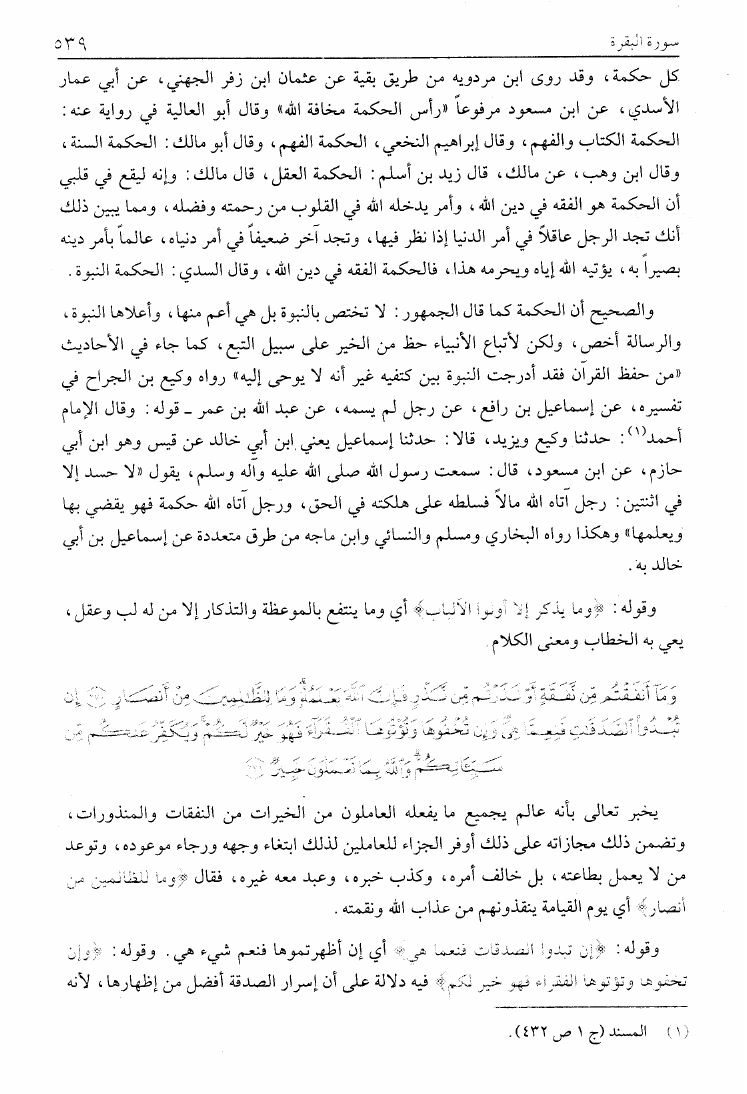 سورة البقرة ٥٣٩
كل حكمة، وقد روى ابن مردويه من طريق بقية عن عثمان ابن زفر الجهني، عن أبي عمار
الأسدي، عن ابن مسعود مرفوعاً «رأس الحكمة مخافة الله» وقال أبو العالية في رواية عنه:
الحكمة الكتاب والفهم، وقال إبراهيم النخعي، الحكمة الفهم، وقال أبو مالك: الحكمة السنة،
وقال ابن وهب، عن مالك، قال زيد بن أسلم: الحكمة العقل، قال مالك: وإنه ليقع في قلبي
أن الحكمة هو الفقه في دين الله، وأمر يدخله الله في القلوب من رحمته وفضله، ومما يبين ذلك
أنك تجد الرجل عاقلاً في أمر الدنيا إذا نظر فيها، وتجد آخر ضعيفاً في أمر دنياه، عالماً بأمر دينه
بصيراً به، يؤتيه الله إياه ويحرمه هذا، فالحكمة الفقه في دين الله، وقال السدي: الحكمة النبوة.
والصحيح أن الحكمة كما قال الجمهور: لا تختص بالنبوة بل هي أعم منها، وأعلاها النبوة،
والرسالة أخص، ولكن لأتباع الأنبياء حظ من الخير على سبيل التبع، كما جاء في الأحاديث
«من حفظ القرآن فقد أدرجت النبوة بين كتفيه غير أنه لا يوحى إليه» رواه وكيع بن الجراح في
تفسيره، عن إسماعيل بن رافع، عن رجل لم يسمه، عن عبد الله بن عمر ـ قوله: وقال الإمام
أحمد(١): حدثنا وكيع ويزيد، قالا: حدثنا إسماعيل يعني ابن أبي خالد عن قيس وهو ابن أبي
حازم، عن ابن مسعود، قال: سمعت رسول الله صلى الله عليه وآله وسلم، يقول «لا حسد إلا
في اثنتين: رجل آتاه الله مالاً فسلطه على هلكته في الحق، ورجل آتاه الله حكمة فهو يقضي بها
ويعلمها» وهكذا رواه البخاري ومسلم والنسائي وابن ماجه من طرق متعددة عن إسماعيل بن أبي
خالد به.
وقوله: ﴿وما يذكر إلا أولوا الألباب﴾ أي وما ينتفع بالموعظة والتذكار إلا من له لب وعقل،
يعي به الخطاب ومعنى الكلام.
وَمَآ أَنفَقْتُم مِّن نَّفَقَةٍ أَوْ نَذَرْتُم مِّن نَّذْرٍ فَإِنَّ ٱللَّهَ يَعْلَمُهُۥ وَمَا لِلظَّٰلِمِينَ مِنْ أَنصَارٍ ﴿٢٧٠﴾ إِن
تُبْدُوا۟ ٱلصَّدَقَٰتِ فَنِعِمَّا هِىَ وَإِن تُخْفُوهَا وَتُؤْتُوهَا ٱلْفُقَرَآءَ فَهُوَ خَيْرٌ لَّكُمْ وَيُكَفِّرُ عَنكُم مِّن
سَيِّـَٔاتِكُمْ وَٱللَّهُ بِمَا تَعْمَلُونَ خَبِيرٌ ﴿٢٧١﴾
يخبر تعالى بأنه عالم بجميع ما يفعله العاملون من الخيرات من النفقات والمنذورات،
وتضمن ذلك مجازاته على ذلك أوفر الجزاء للعاملين لذلك ابتغاء وجهه ورجاء موعوده، وتوعد
من لا يعمل بطاعته، بل خالف أمره، وكذب خبره، وعبد معه غيره، فقال ﴿وما للظالمين من
أنصار﴾ أي يوم القيامة ينقذونهم من عذاب الله ونقمته.
وقوله: ﴿إن تبدوا الصدقات فنعما هي﴾ أي إن أظهرتموها فنعم شيء هي. وقوله: ﴿وإن
تخفوها وتؤتوها الفقراء فهو خير لكم﴾ فيه دلالة على أن إسرار الصدقة أفضل من إظهارها، لأنه
(١) المسند (ج ١ ص ٤٣٢).